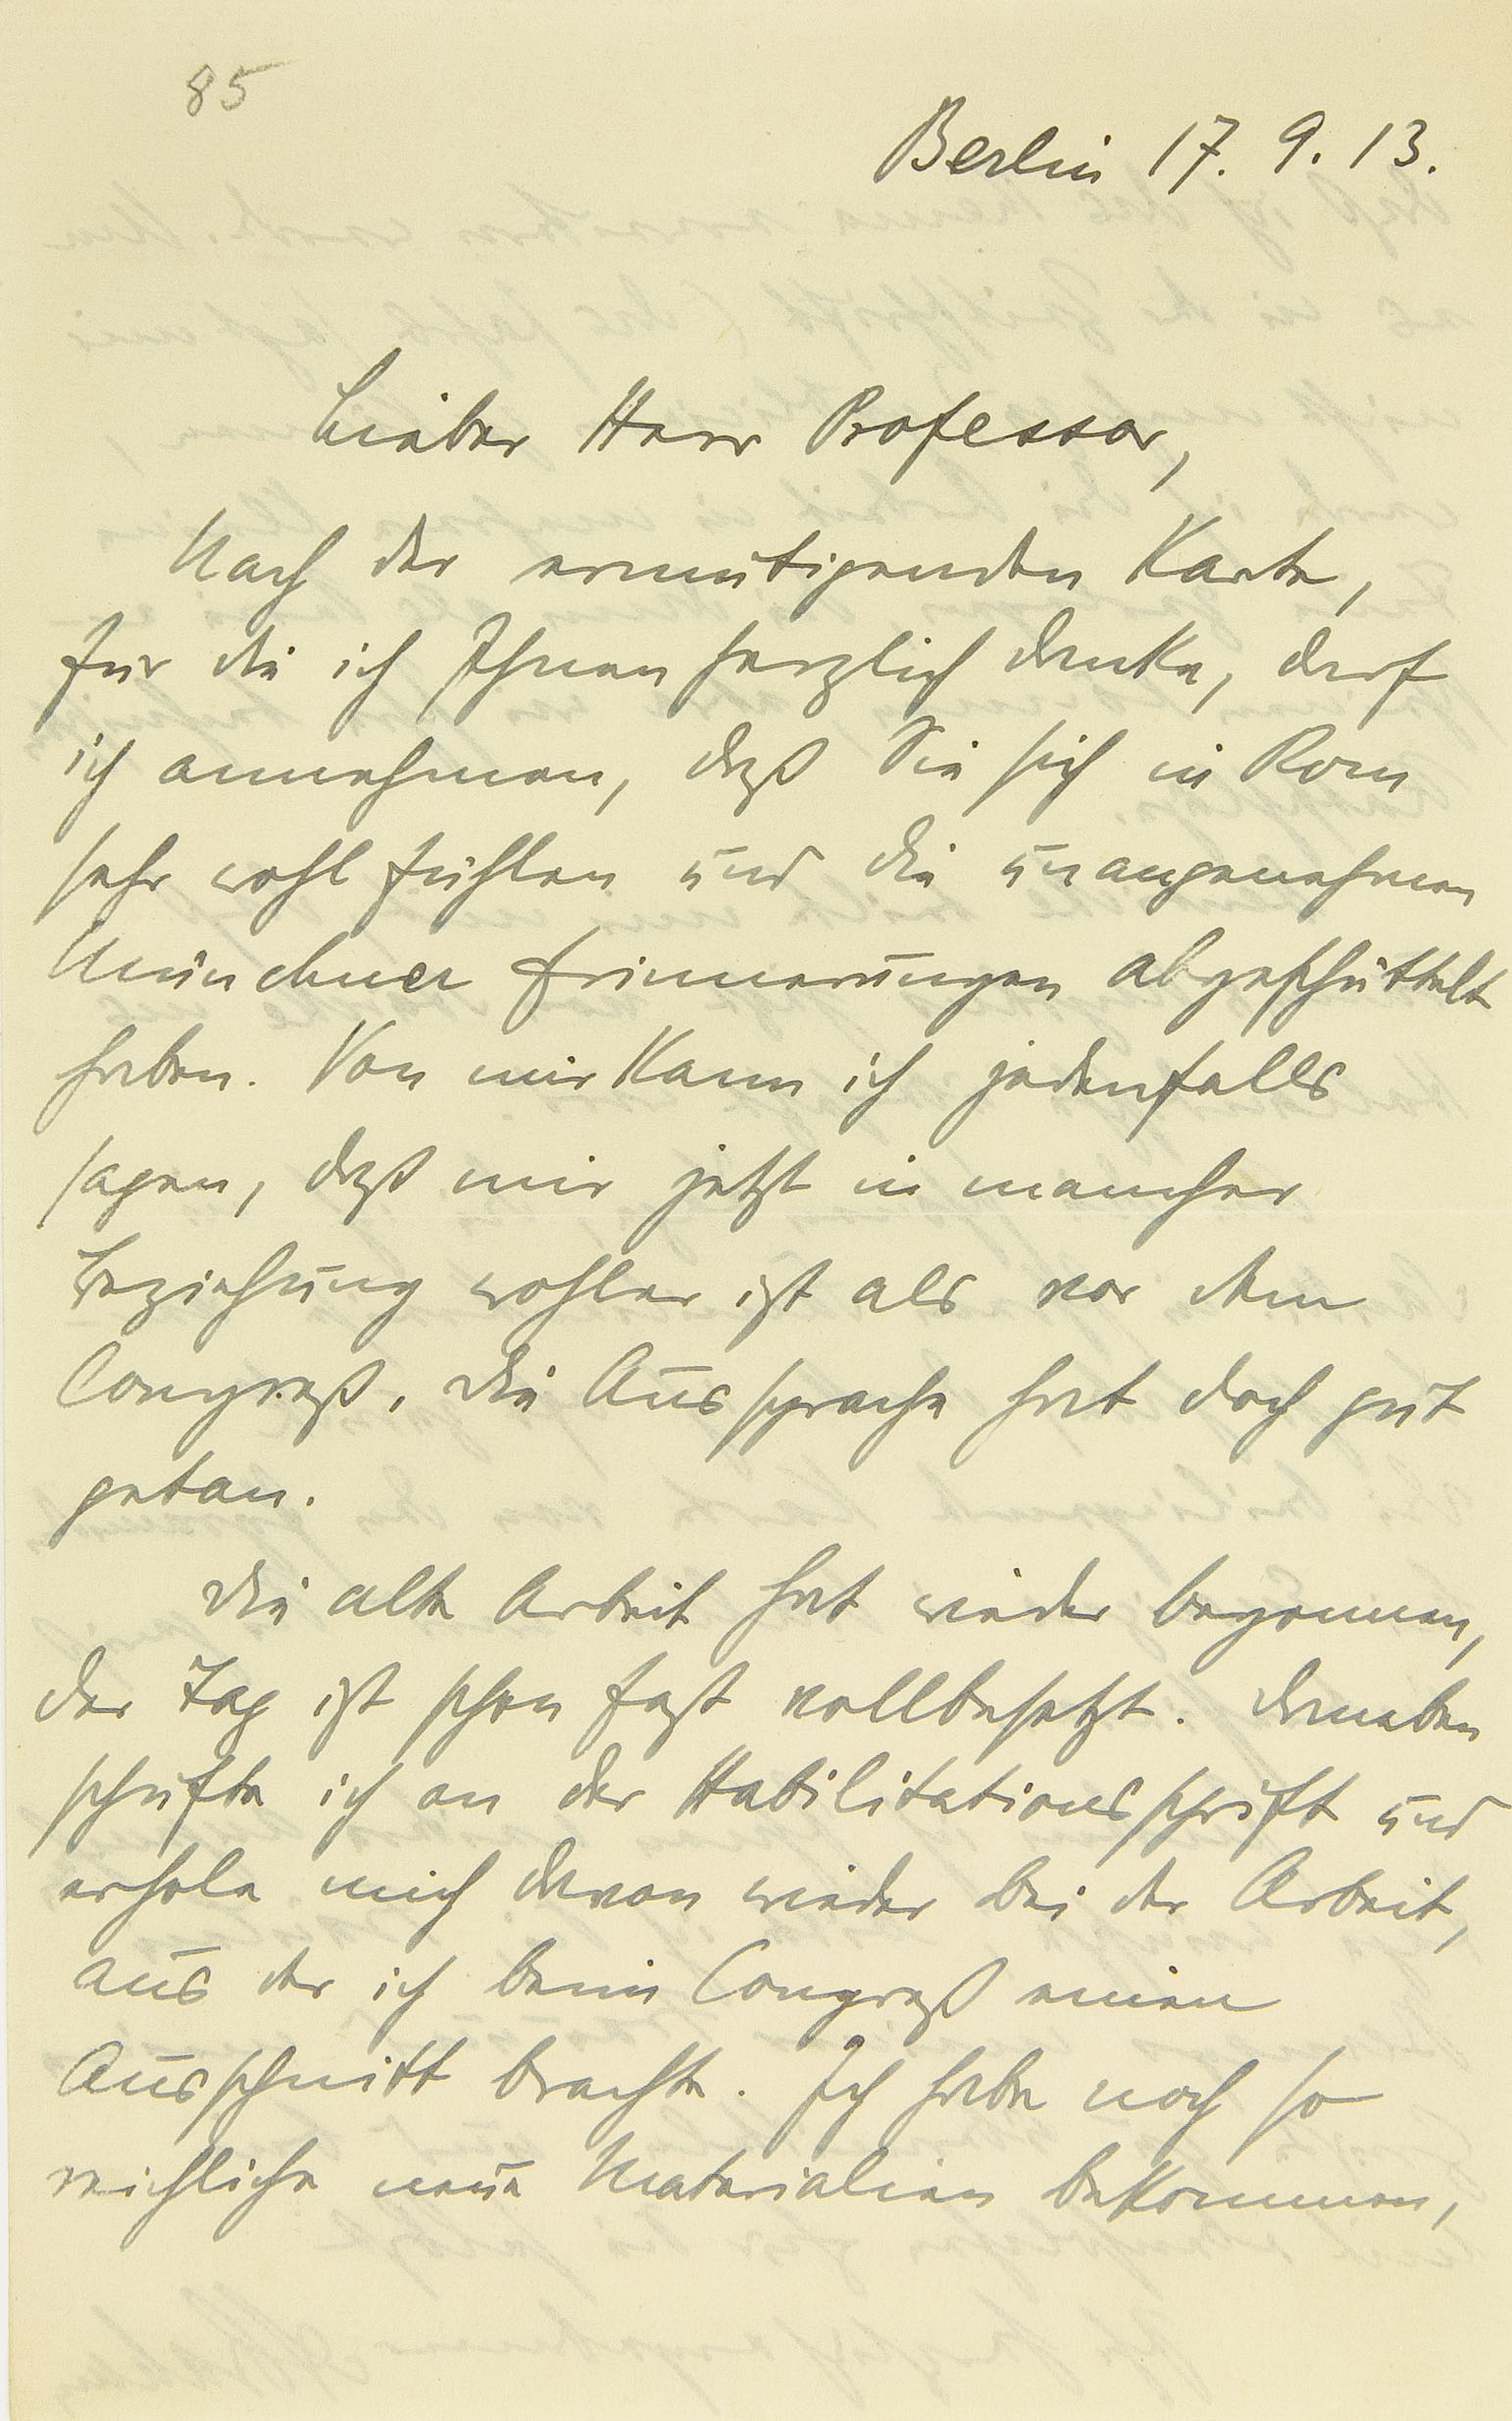 85
Berlin 17. 9. 13.
Lieber Herr Professor,
Nach der ermutigenden Karte,
für die ich Ihnen herzlich danke, darf
ich annehmen, daß Sie sich in Rom
sehr wohl fühlen und die unangenehmen
Münchner Erinnerungen abgeschüttelt
haben. Von mir kann ich jedenfalls
sagen, daß mir jetzt in mancher
Beziehung wohler ist als vor dem
Congreß. Die Aussprache hat doch gut
getan.
Die alte Arbeit hat wieder begonnen,
der Tag ist schon fast vollbesetzt. Daneben
schufte ich an der Habilitationsschrift und
erhole mich davon wieder bei der Arbeit,
aus der ich beim Congreß einen
Ausschnitt brachte. Ich habe noch so
reichliche neue Materialien bekommen,